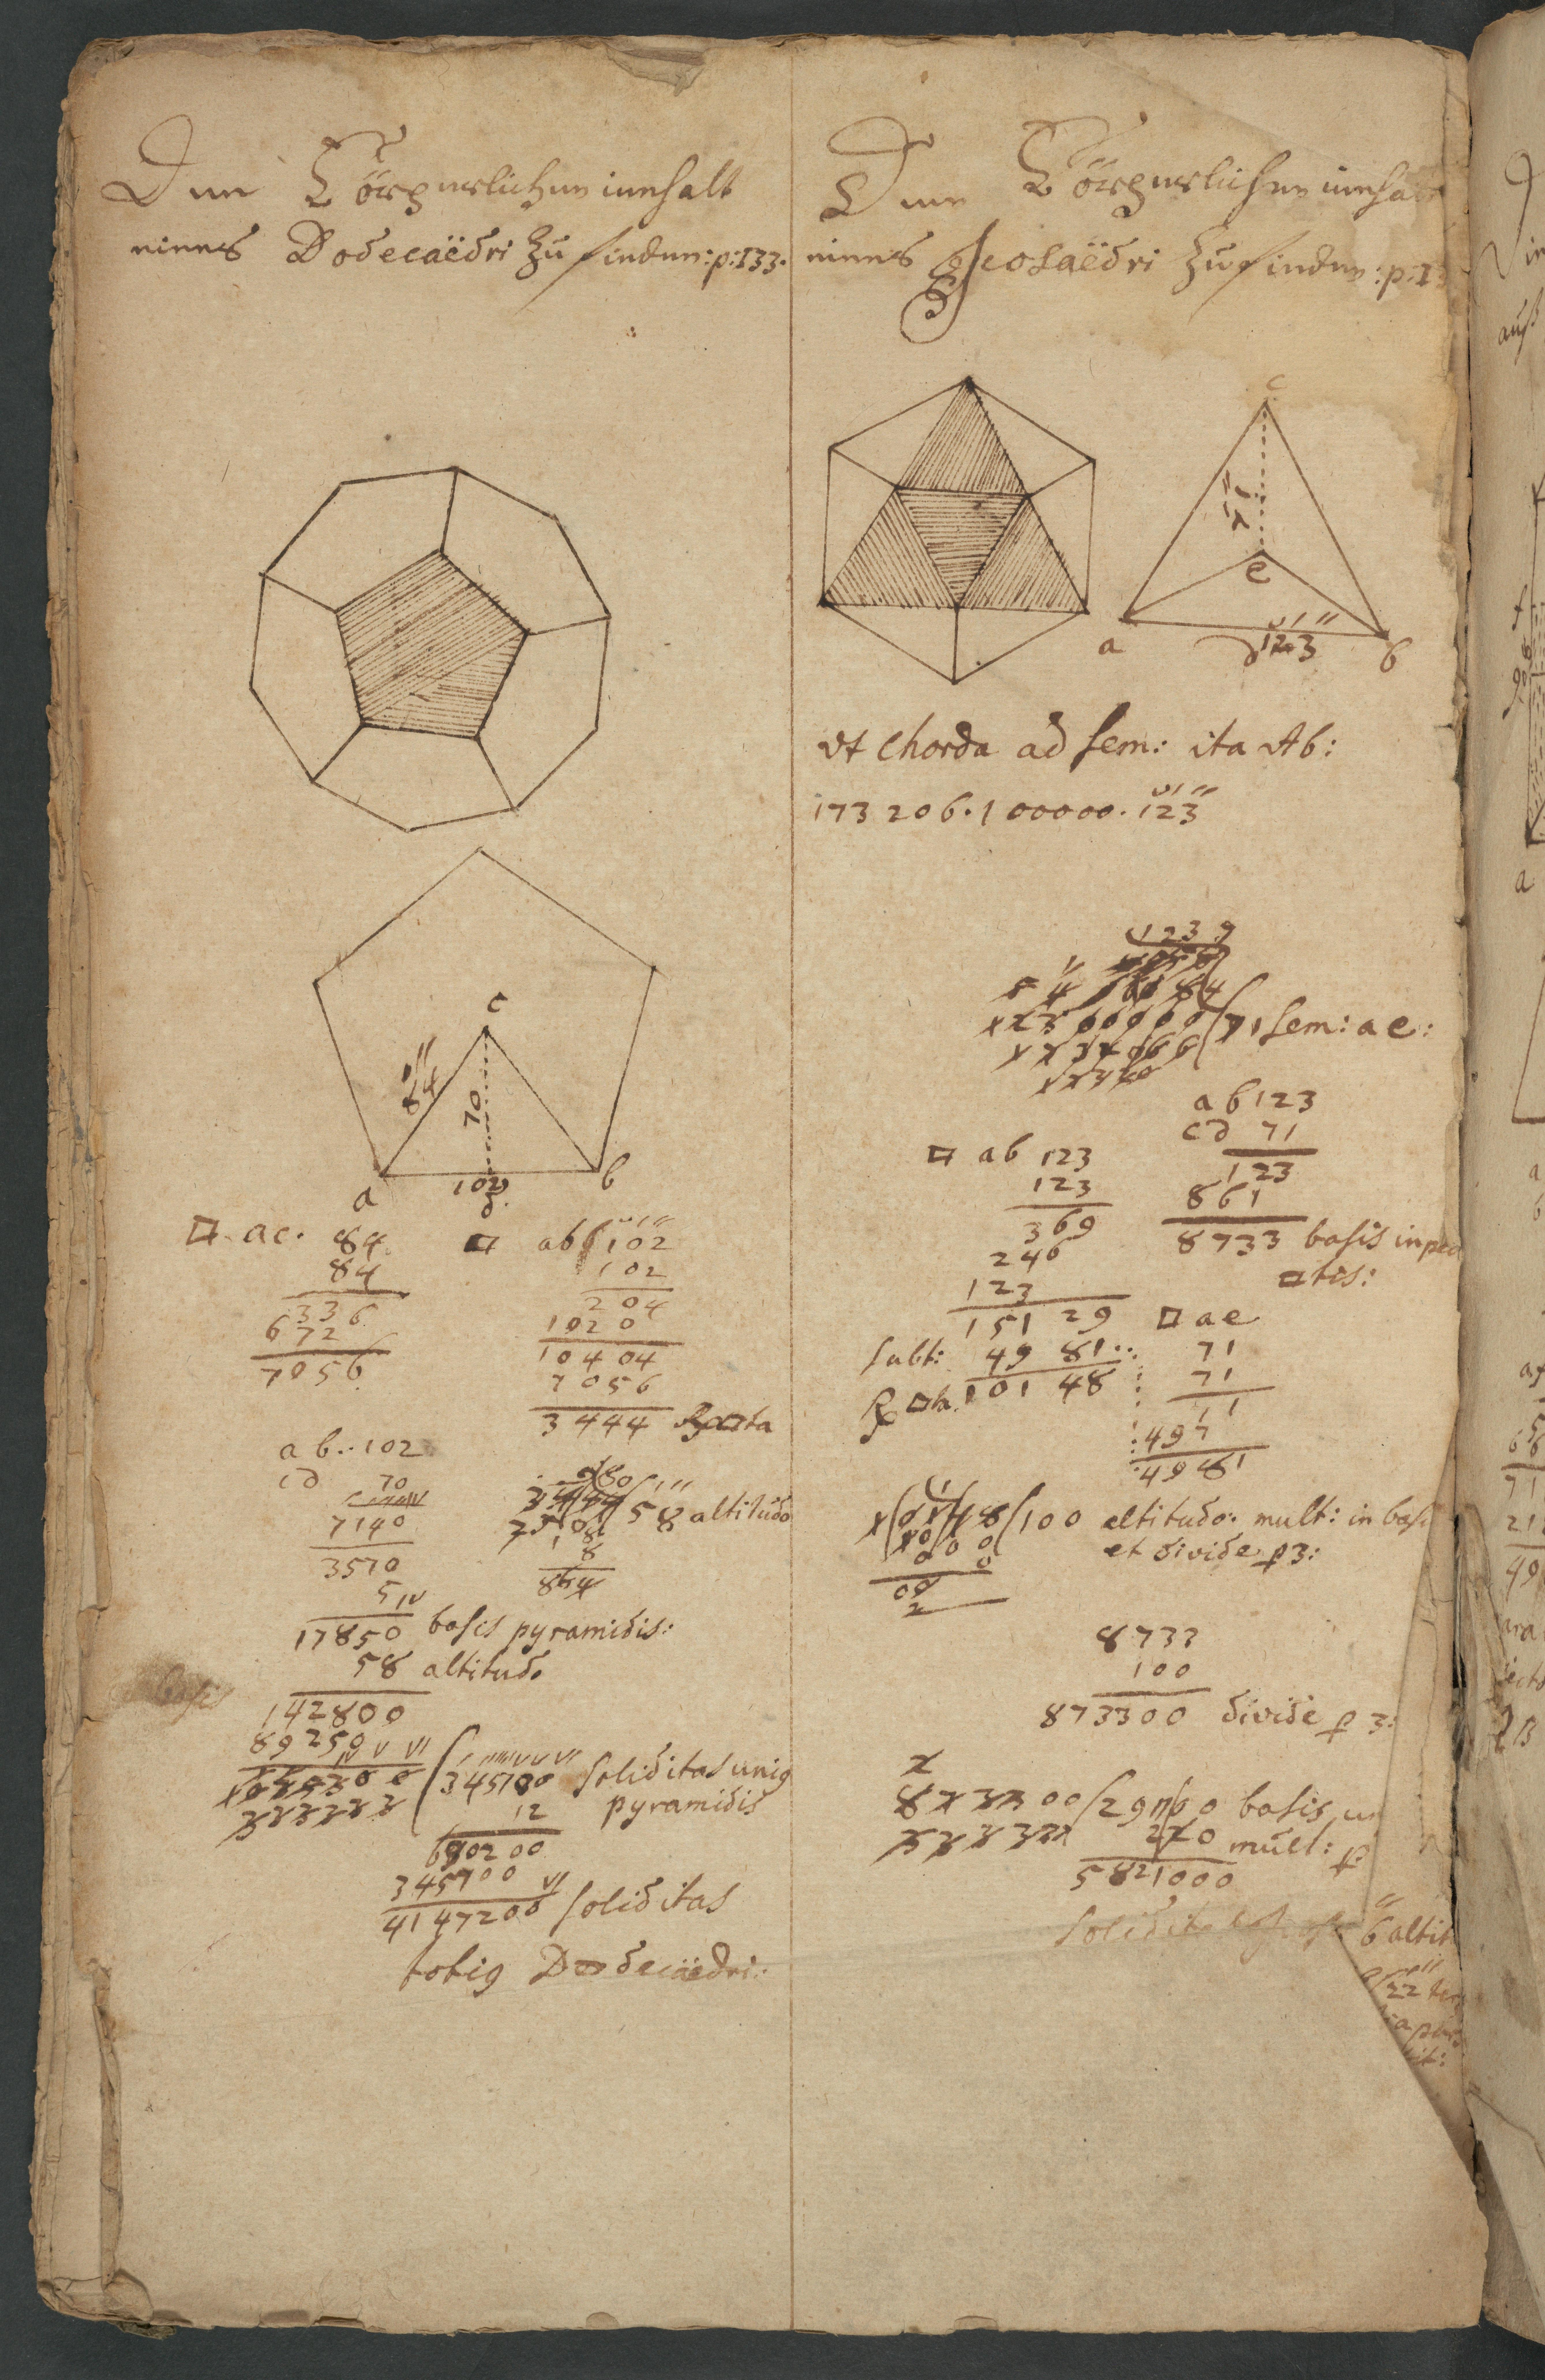 Den Cörperlichen innhalt
eines Dodecaëdri zu finden: p: 133.
c
84
70
a
102
d.
b
□ ac. 84
84
336
672
7056
□ ab 102
102
204
1020
10404
7056
3444 Rx □ta
ab.. 102
cd 70
7140
3570
5
17850 basis pyramidis:
58 altitudo
142800
89250
58 altitudo
8
8
864
basis
345100 soliditas uniq
pyramidis
12
690200
345100
4147200 soliditas
totiq Dodecäedri:
Den Cörperlichen innhalt
eines Icosaëdri zu finden: p: 1
c
71
e
a
d 123
b
Vt Chorda ad sem: ita Ab:
173206. 100000. 123
1239
71 sem: ae:
ab 123
cd 71
123
861
8733 basis in
□tis:
□ ab 123
123
369
246
123
15129 □ ae
Subt: 4981
Rx □ta 10148
71
71
71
497
4981
100 altitudo: mult: in basi
et divide p 3:
8733
100
873300 divide p 3:
basis
mult: p
5821000
Solidit
6 altit
22